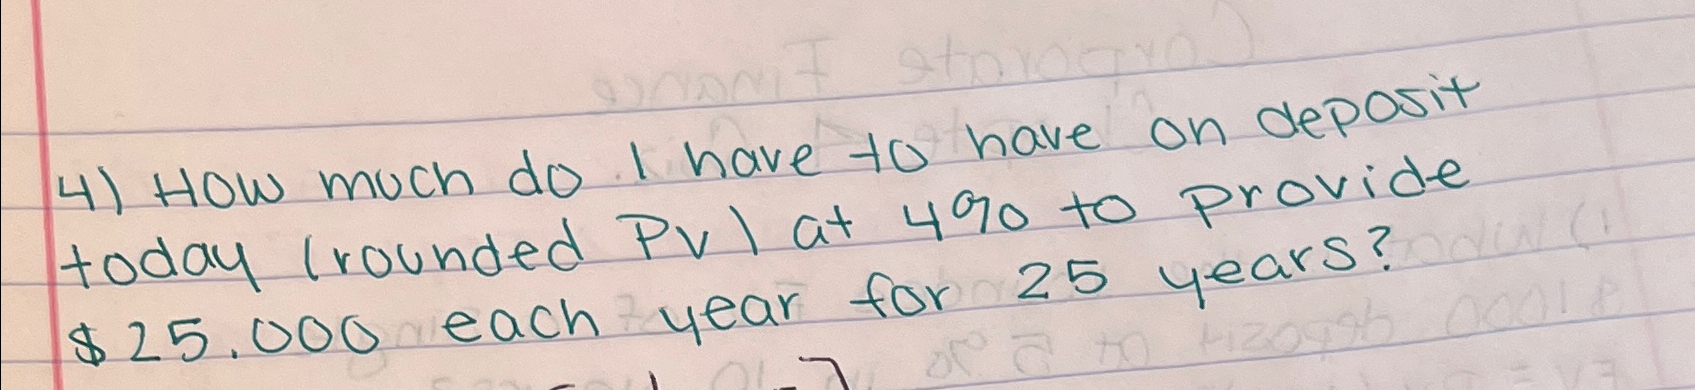 4) How much do I have to have on deposit
today (rounded PV) at 4% to provide
$25.000 each year for 25 years?